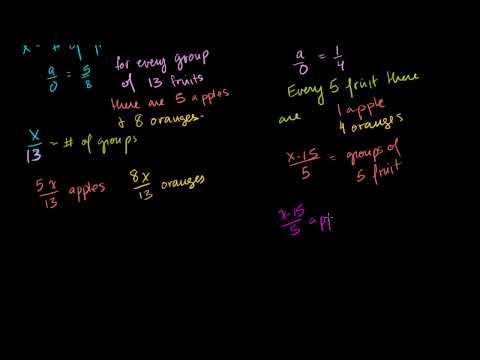 a/o = 5/8
for every group
of 13 fruits
there are 5 apples
+ 8 oranges.
x/13 = # of groups
5x/13 apples
8x/13 oranges
a/o = 1/4
Every 5 fruit there
are 1 apple
4 oranges
x-15/5 = groups of
5 fruit
x-15/5 app